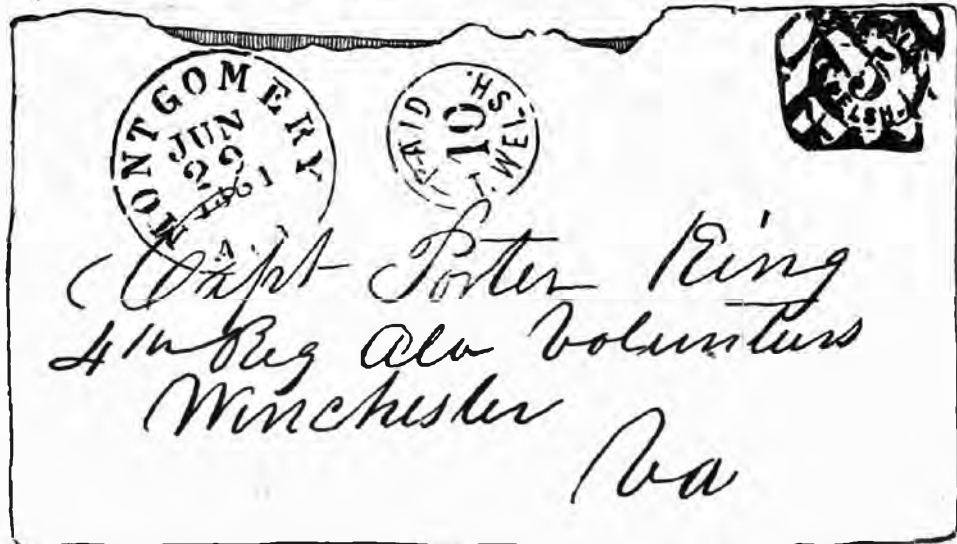 MONTGOMERY
JUN
22
1861
PAID
10
T. WELSH.
5
WELSH
Capt Porter King
4th Reg Ala Volunteers
Winchester
Va